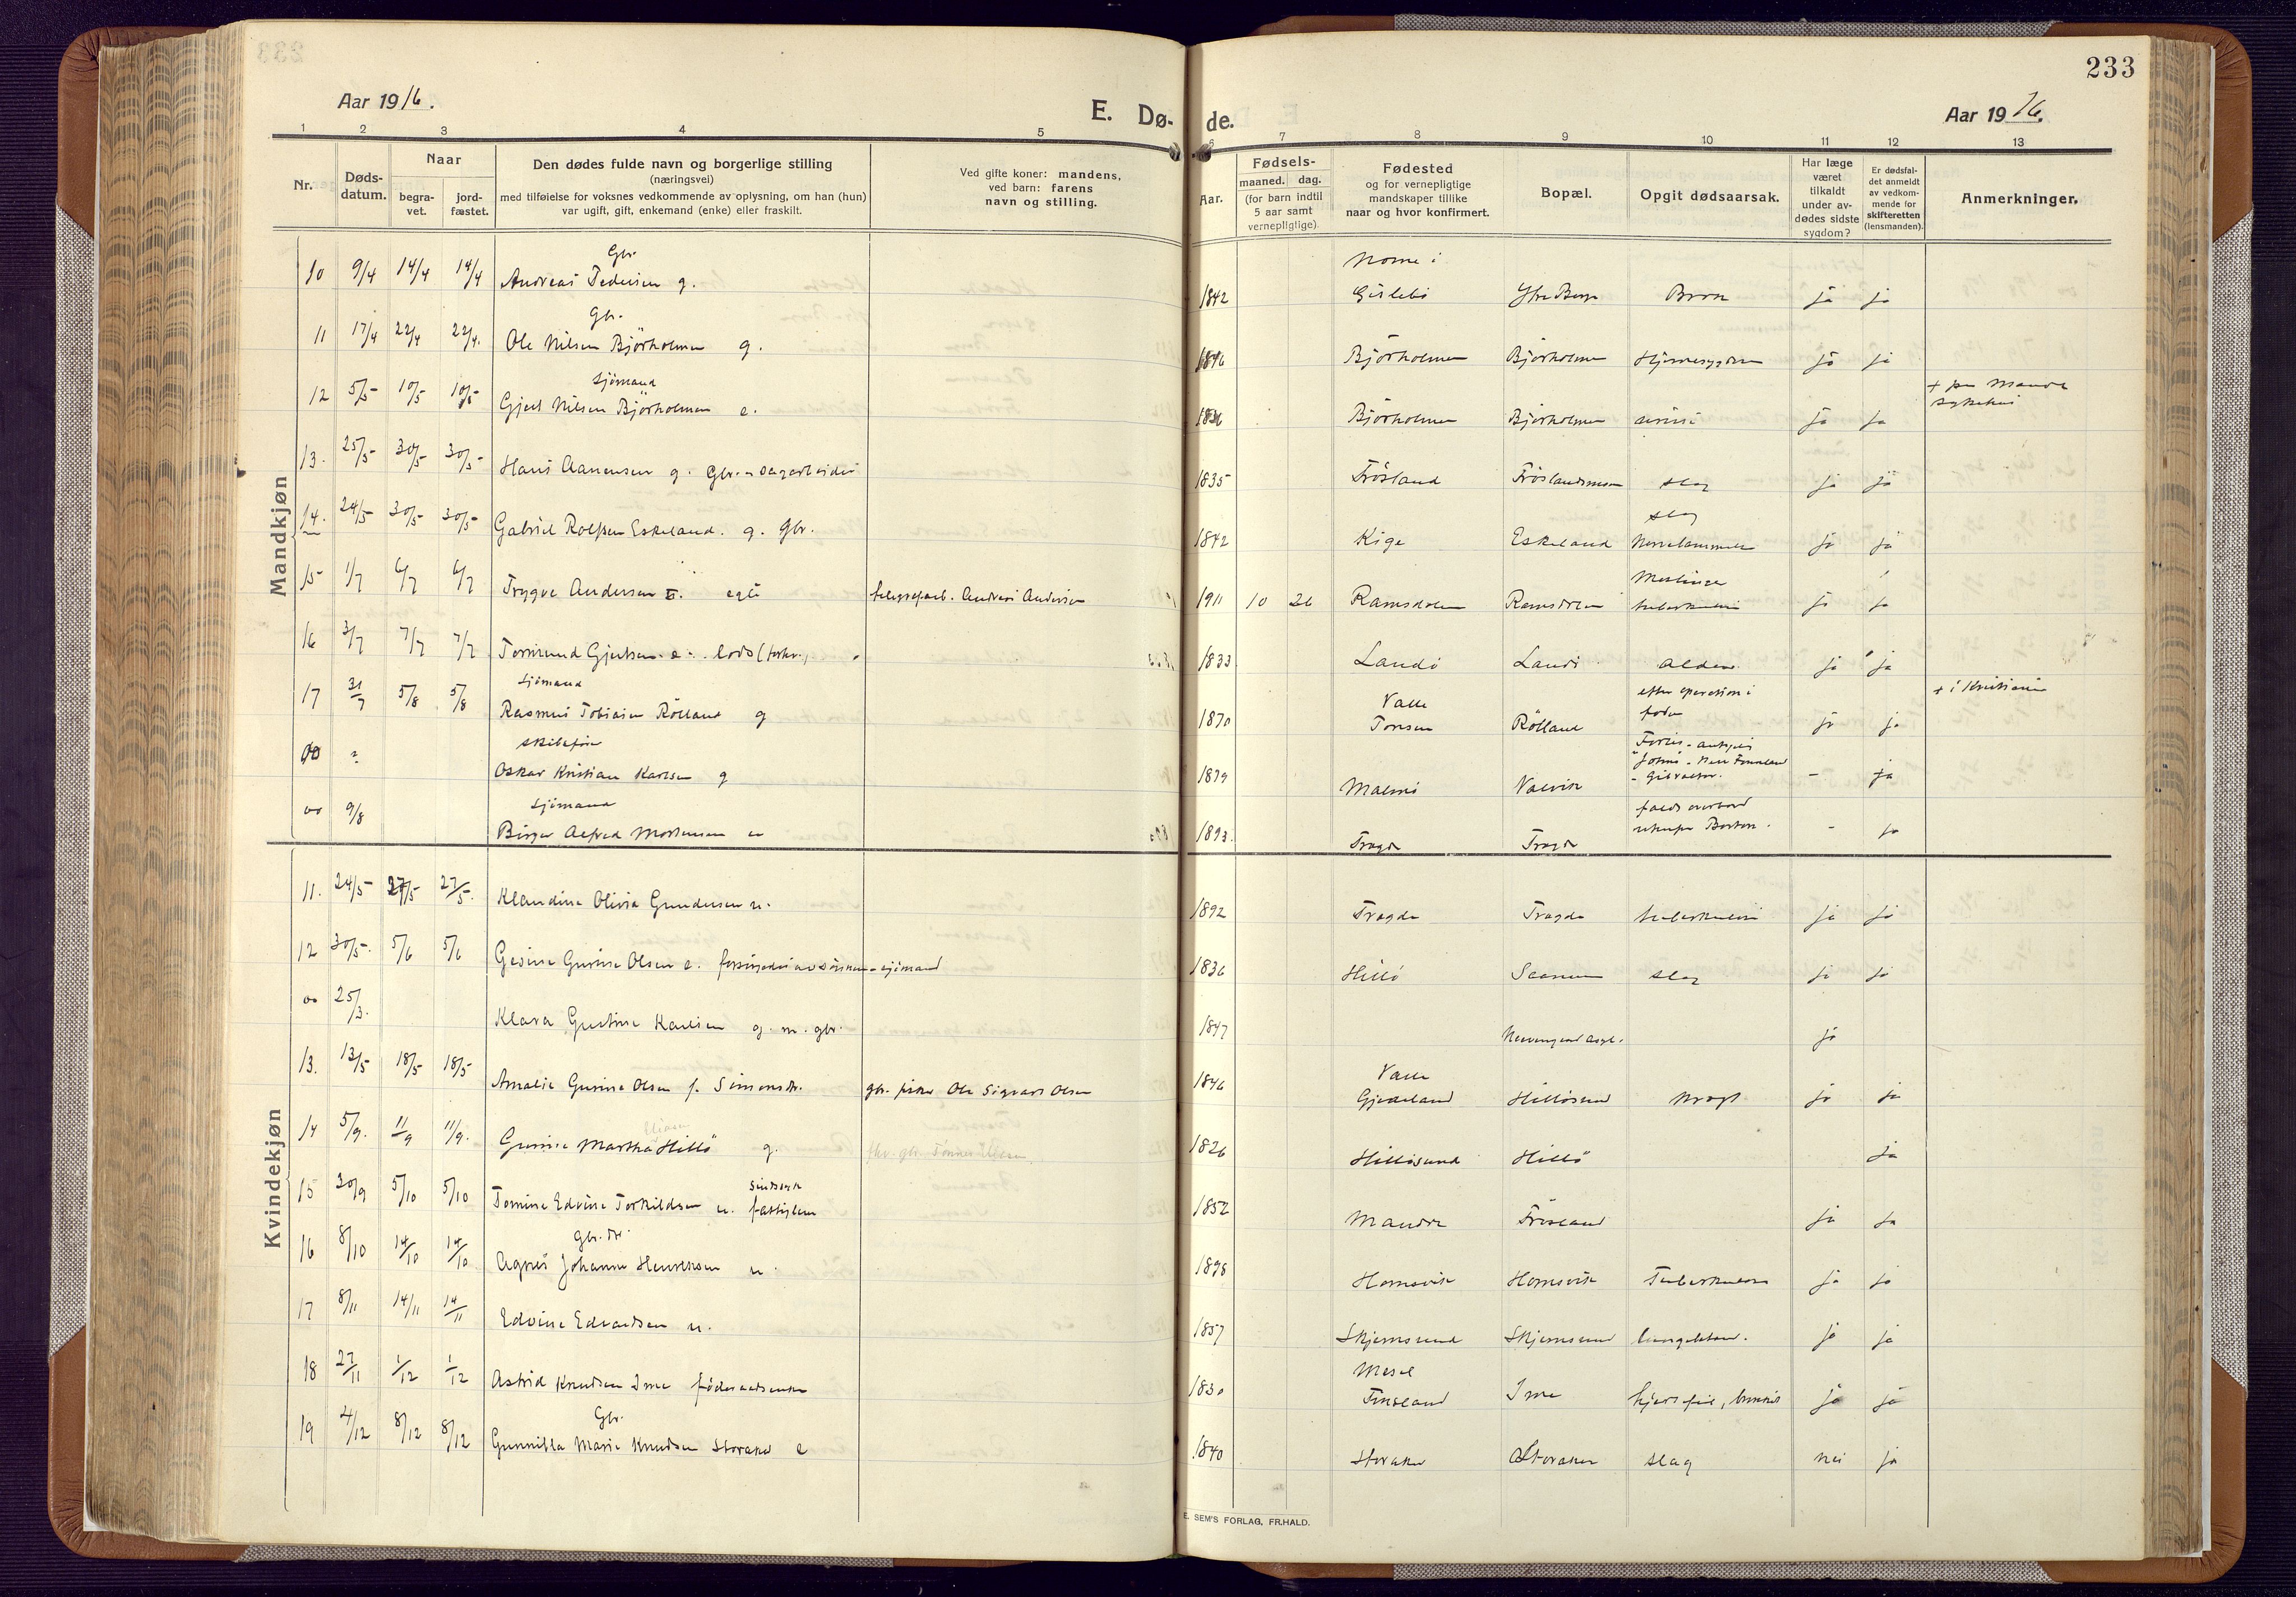 233
Aar 1916.
E. Dø-
de.
Aar 1916.
1 2 3 4 5 6 7 8 9 10 11 12 13
Nr.
Døds-
datum.
Naar
begra-
vet.
jord-
fæstet.
Den dødes fulde navn og borgerlige stilling
(næringsvei)
med tilføielse for voksnes vedkommende av oplysning, om han (hun)
var ugift, gift, enkemand (enke) eller fraskilt.
Ved gifte koner: mandens,
ved barn: farens
navn og stilling.
Aar.
Fødsels-
maaned. dag.
(for barn indtil
5 aar samt
vernepligtige).
Fødested
og for vernepligtige
mandskaper tillike
naar og hvor konfirmert.
Bopæl.
Opgit dødsaarsak.
Har læge
været
tilkaldt
under av-
dødes sidste
sygdom?
Er dødsfal-
det anmeldt
av vedkom-
mende for
skifteretten
(lensmanden).
Anmerkninger.
Mandkjøn
Gbr.
10 9/4 14/4 14/4 Andreas Pedersen g. 1842 Ytre Berge ja ja
Gbr.
11 17/4 22/4 22/4. Ole Nilsen Björholmen g. 1846 Björholmen Björholmen ja ja
Sjömand
12 5/5 10/5 10/5 Gjert Nilsen Björholmen e. 1836 Björholmen Björholmen ja ja
13. 25/5 30/5 30/5 Hans Aanensen g. Gbr. 1835 Frösland slag ja ja
14. 24/5 30/5 30/5 Gabriel Rolfsen Eskeland. g. Gbr. 1842 Kige Eskeland slag ja ja
15 1/7 6/7 6/7 Trygve Andersen egte Andreas Andersen 1911 10 26 tuberkulose ja ja
16 3/7 7/7 7/7 Tormund Gjertsen e. lods 1833 Landö Landö ja ja
Sjömand
17 31/7 5/8 5/8 Rasmus Tobiasen Rölland g 1870 Valle Rölland efter operation i ja ja + i Kristiania
00 ? Oskar Kristian Karlsen g 1879 Malmö Valvik Gibraltar. - ja
Sjömand
00 9/8 Birger Alfred Mortensen u 1893. Tregde Tregde Boston. - ja
Kvindekjøn
11. 24/5 27/5 27/5. Klaudine Olivia Gundersen u. 1892 Tregde Tregde tuberkulose ja ja
12 30/5. 5/6 5/6 Gesine Gurine Olsen e. sjömand 1836 Hillö Saanum slag ja ja
00 25/3. Klara Gustine Karlsen g. m. gbr. 1847 ja
13. 13/5 18/5 18/5 Amalie Gurine Olsen f. Simonsdtr. gbr. fisker Ole Sigvart Olsen 1846 Valle Hillösund ja ja
14 5/9. 11/9 11/9. Gurine Martha Hillö g. 1826 Hillösund Hillö ja
15 30/9 5/10 5/10 Tomine Edvine Torkildsen u. sindssyk fattiglem 1852 Mandal Fröseland ja ja
Gbr. dtr.
16 8/10 14/10 14/10 Agnes Johanne Henriksen u. 1898 Homsvik Homsvik Tuberkulose ja ja
17 8/11 14/11 14/11 Edvine Edvardsen u. 1857 Skjernsund Skjernsund ja ja
18 27/11 1/12 1/12 Astrid Knudsen Ime föderaadsenke 1830 Finsland Ime hjertefeil, bronkit ja ja
Gbr.
19 4/12 8/12 8/12 Gunnilla Marie Knudsen Storaker e 1840 Storaker Storaker slag nei ja
E. SEM'S FORLAG, FR.HALD.